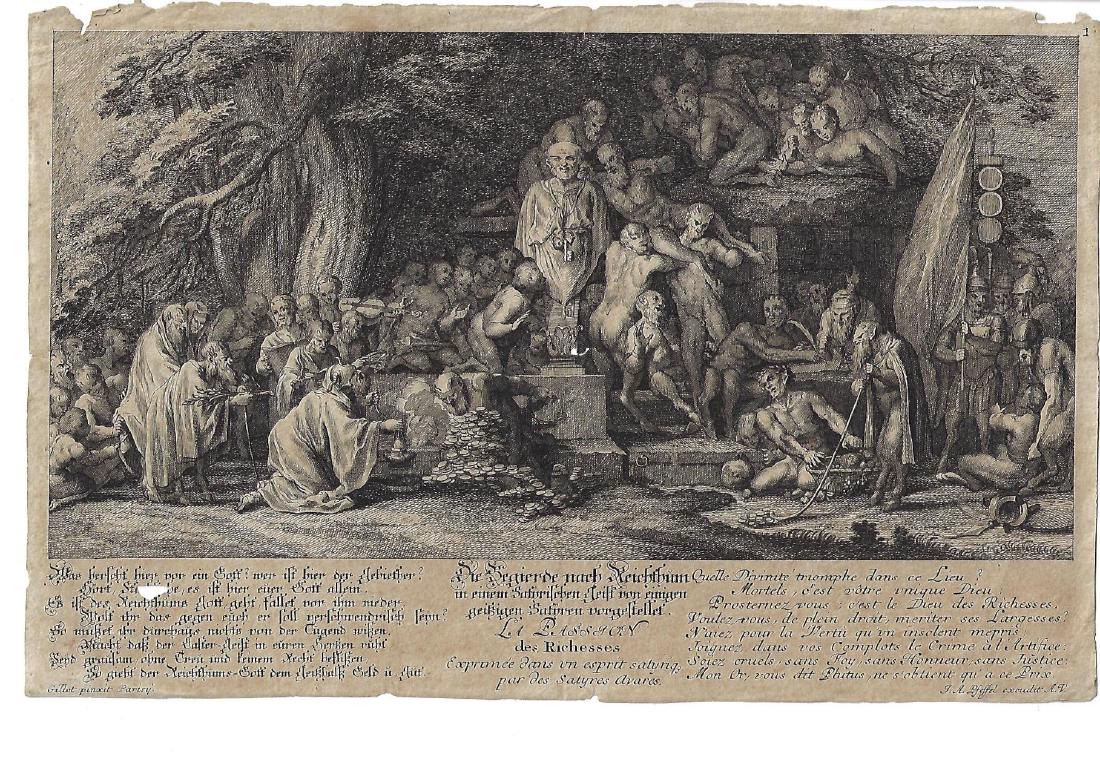 1
Was herscht hier vor ein Gott? wer ist hier der Gebiether?
Hört, es ist hier euer Gott allein.
Es ist des Reichthums Gott geht fallet vor ihm nieder.
Wolt ihr das gegen euch er soll verschwendrisch seyn?
So müßet ihr durchaus nichts von der Tugend wißen,
Macht daß der Laster-Geist in euren Hertzen ruht
Seyd grausam ohne Treu und keinem Recht beflißen
So giebt der Reichthums-Gott dem Geitzhalß Geld u. Gut.
Gillot pinxit Parisy.
Die Begierde nach Reichthum
in einem Satyrischen Geist von einigen
geitzigen Satyren vorgestellet.
LA PASSION
des Richesses
Exprimée dans un esprit satiriq.
par des Satyres Avares.
Quelle Divinité triomphe dans ce Lieu?
Mortels, c'est vôtre unique Dieu,
Prosternez vous; c'est le Dieu des Richesses,
Voulez-vous, de plein droit, meriter ses Largesses?
N'aiez pour la Vertù qu'un insolent mepris
Joignez dans vos Complots le Crime à l'Artifice:
Soiez cruels, sans Foy, sans Honneur, sans Justice:
Mon Or, vous dit Plutus, ne s'obtient qu'a ce Prix.
J. A. Pfeffel excudit A.V.